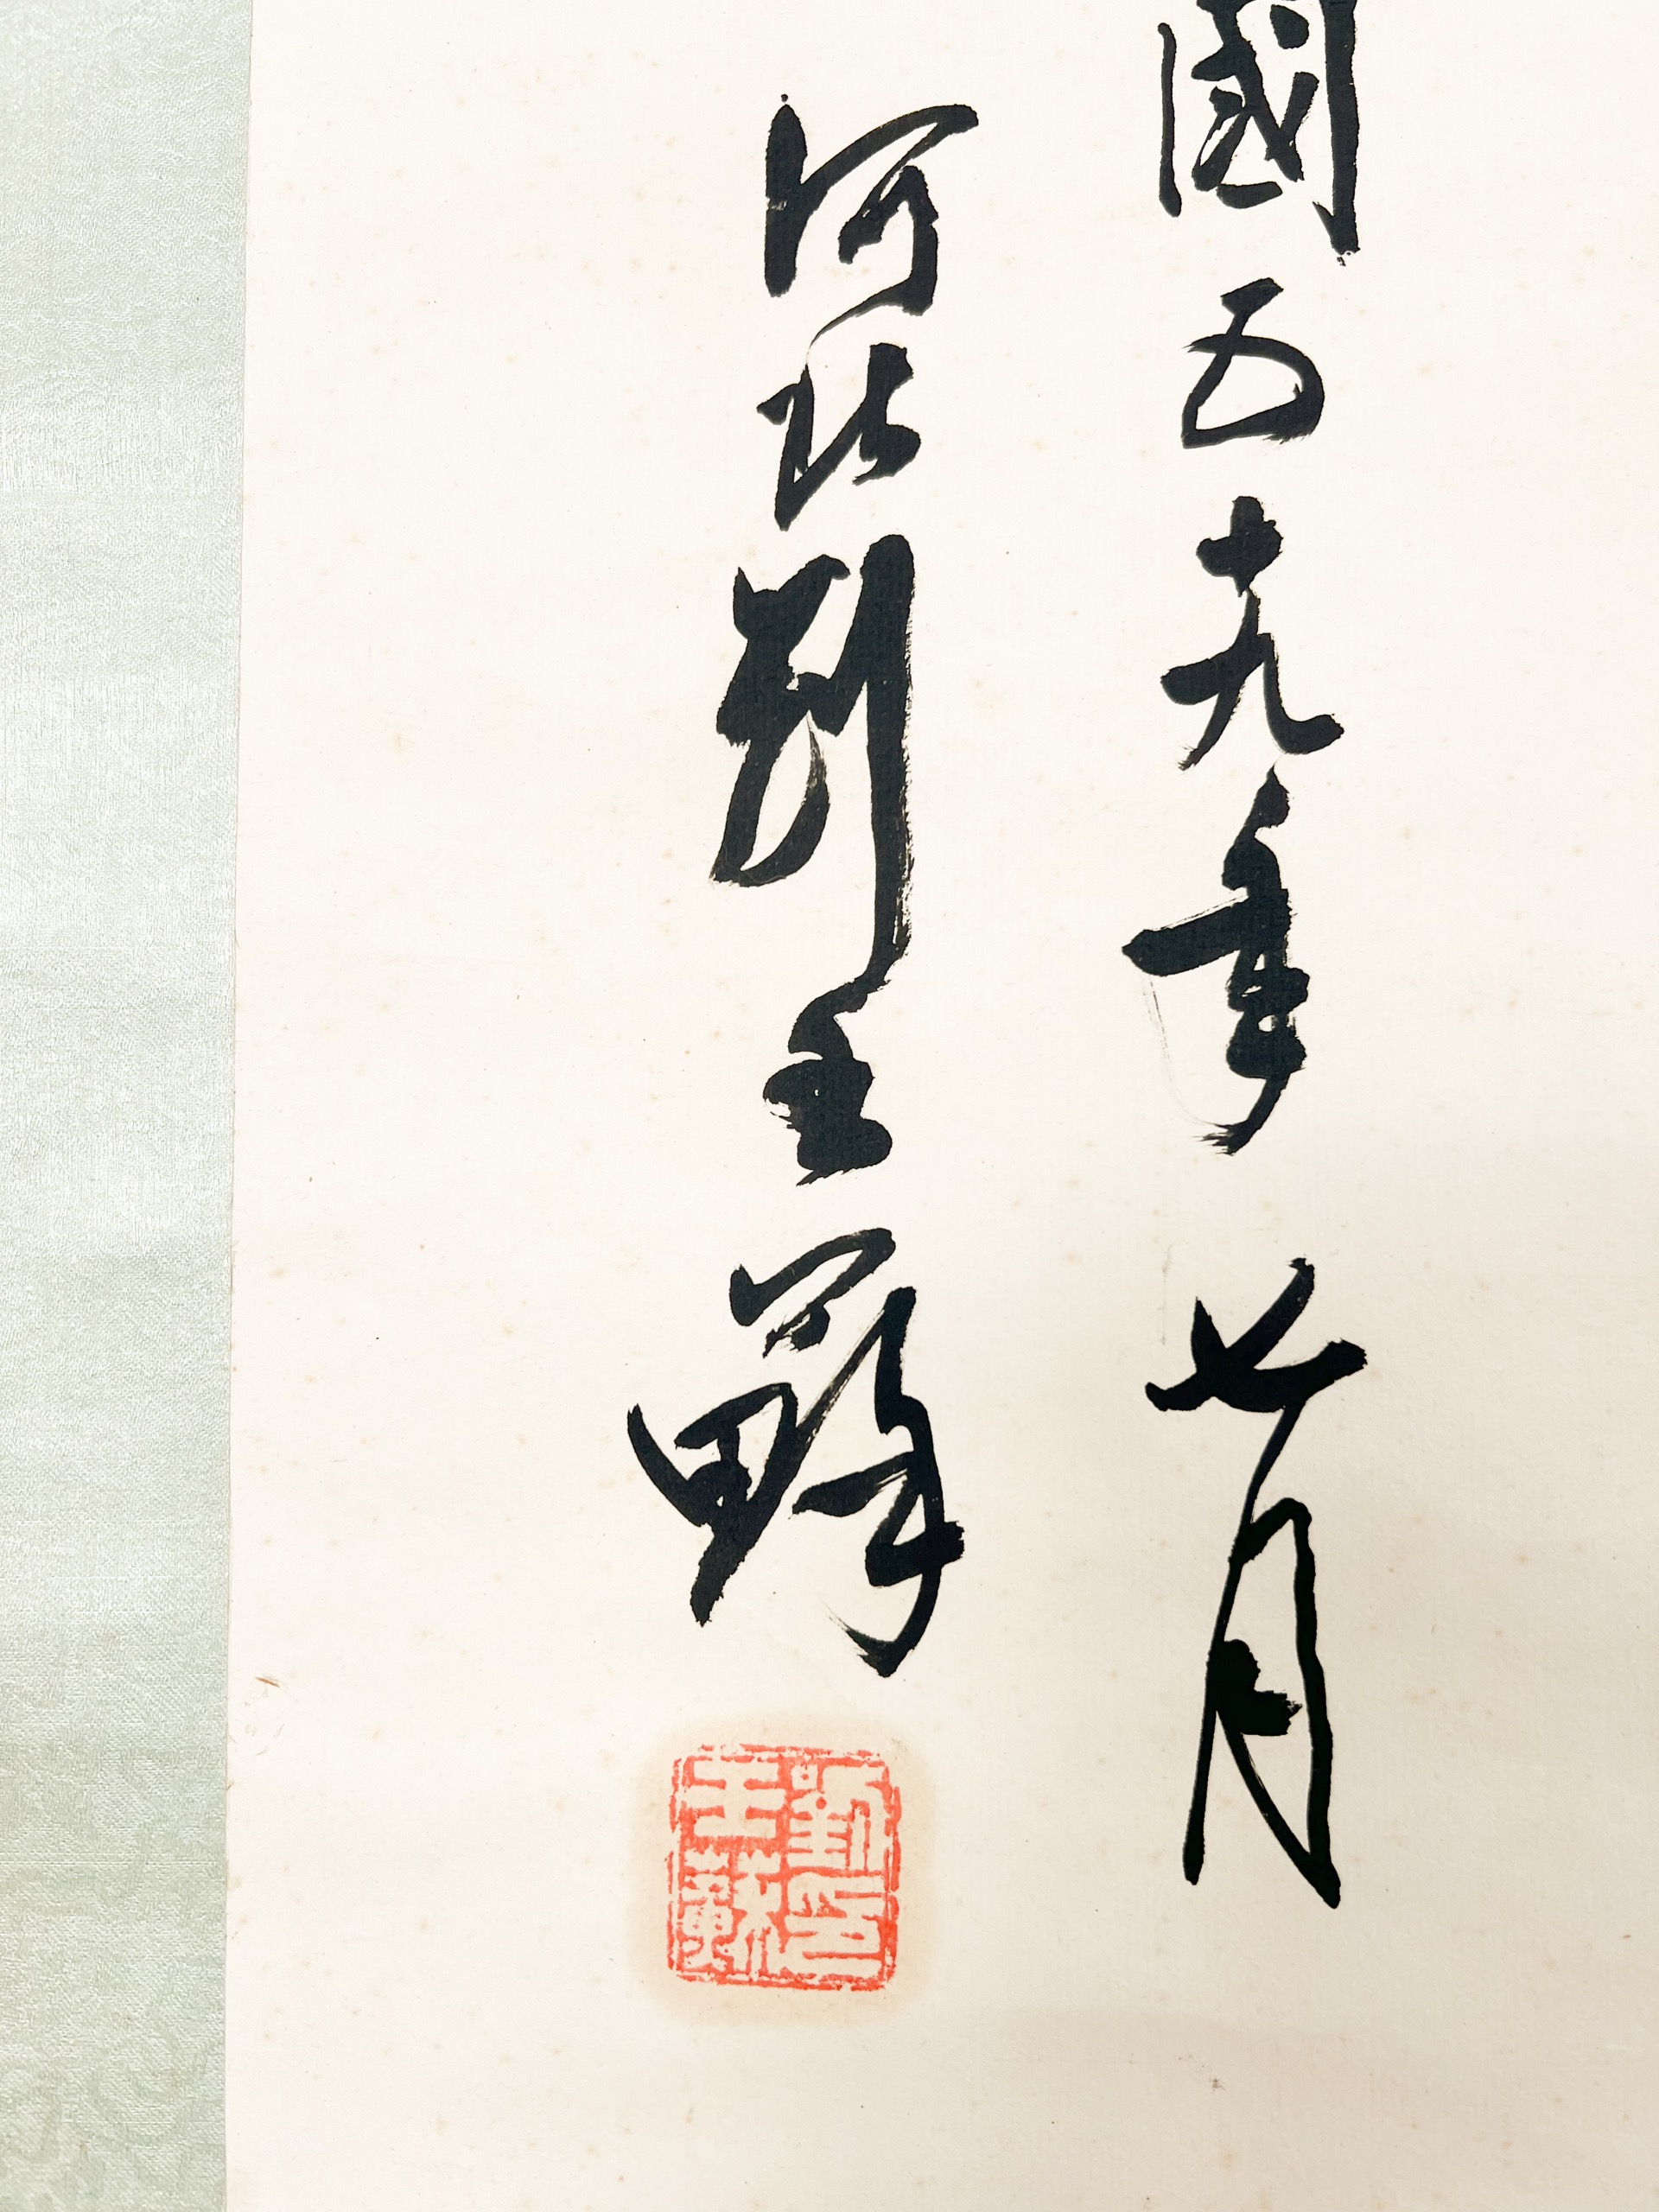 國五十九年七月
河北劉玉
劉印
玉